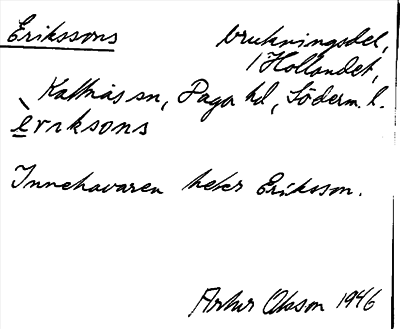 Erikssons brukningsdel,
i Hollandet,
Kattnäs sn, Daga hd, Söderm. l.
èriksons
Innehavaren heter Eriksson.
Arthur Olsson 1946